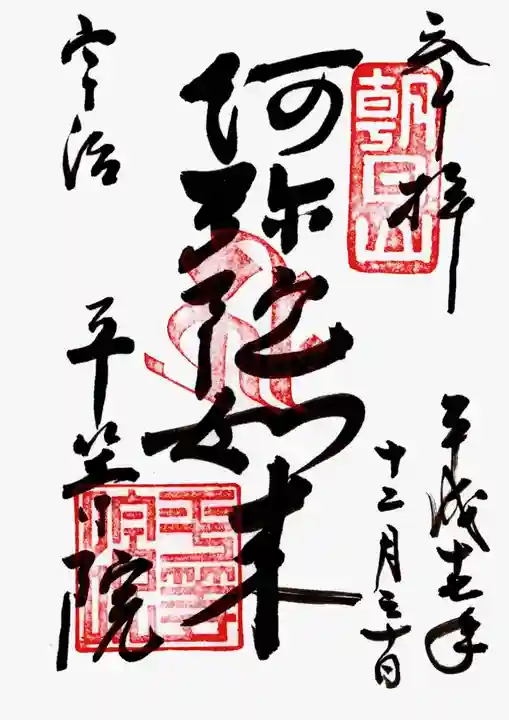 奉拝
朝日山
平成年
十二月三十日
阿弥陀如来
宇治
平等院